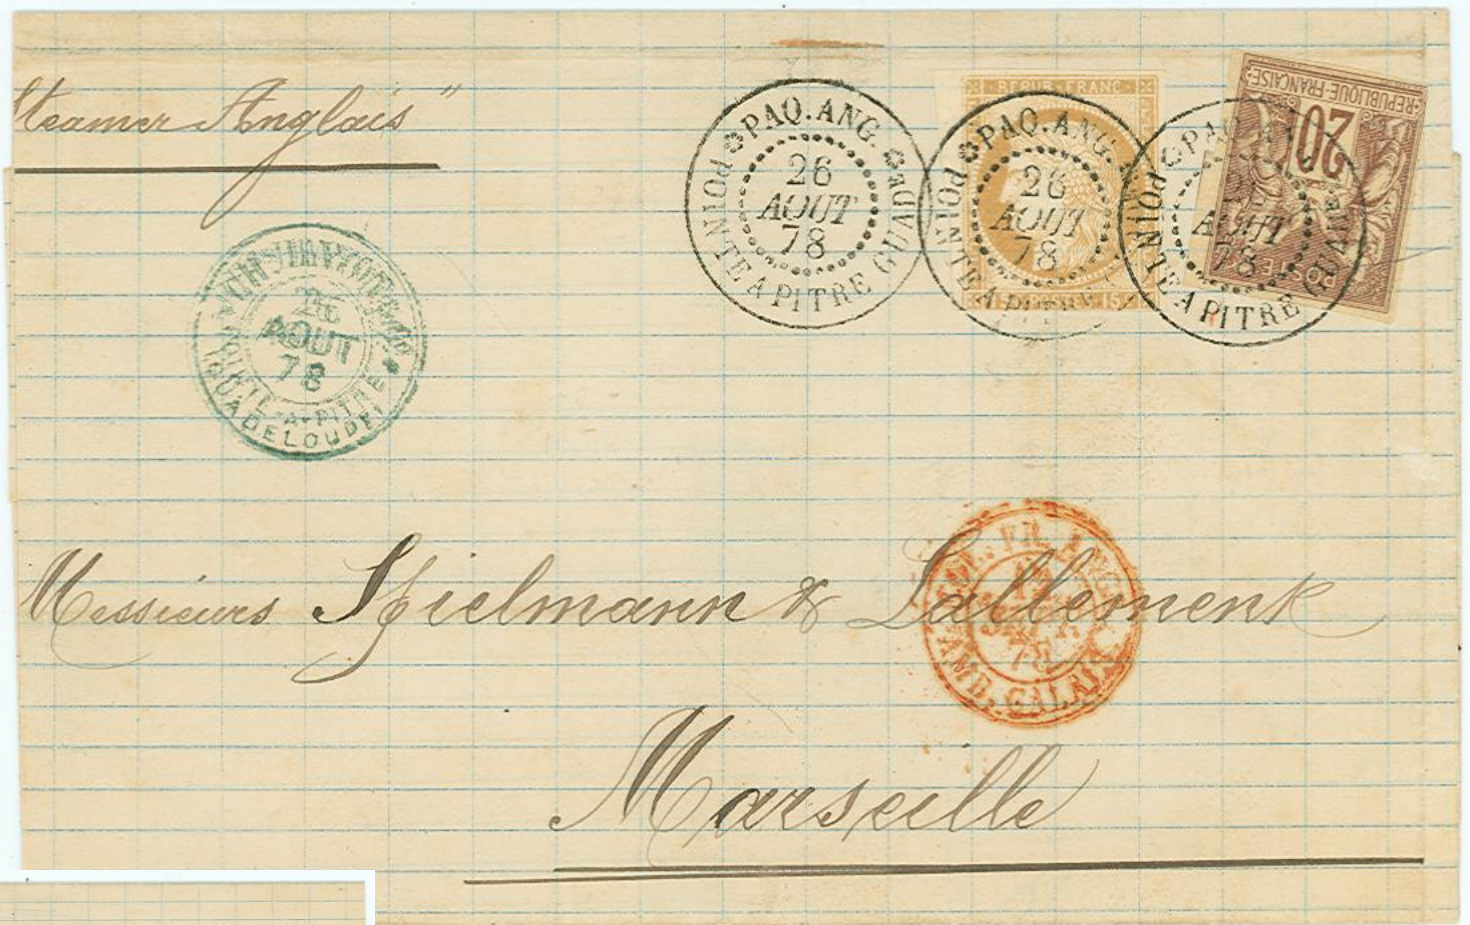 Steamer Anglais"
PAQ. ANG.
26
AOUT
78
POINTE A PITRE GUADE
REPUB. FRANC.
15
PAQ. ANG.
26
AOUT
78
POINTE A PITRE
REPUBLIQUE FRANÇAISE
20
POSTE
PAQ. AN
AOUT
78
POINTE A PITRE GUADE
26
AOUT
78
POINTE-A-PITRE
GUADELOUPE
Messieurs Spielmann & Lallement
FR. ANG.
SEPT.
78
AMB. CALAIS
Marseille